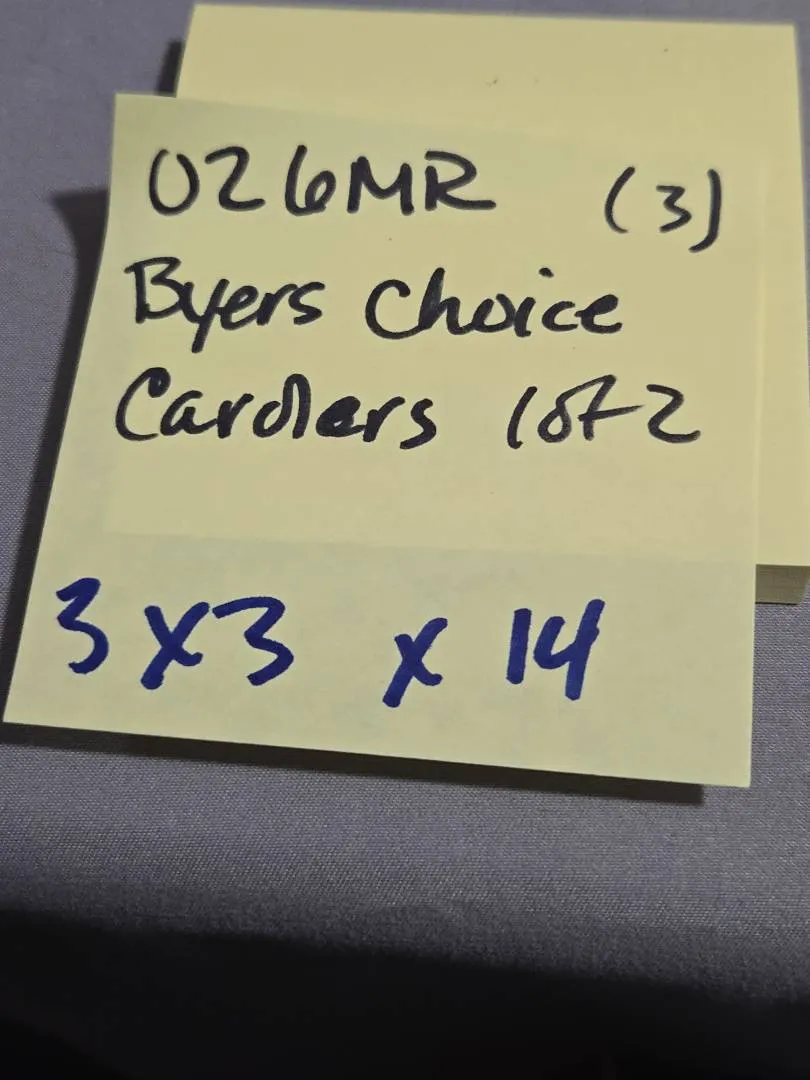 026MR (3)
Byers Choice
Carolers 1 of 2
3 x 3 x 14